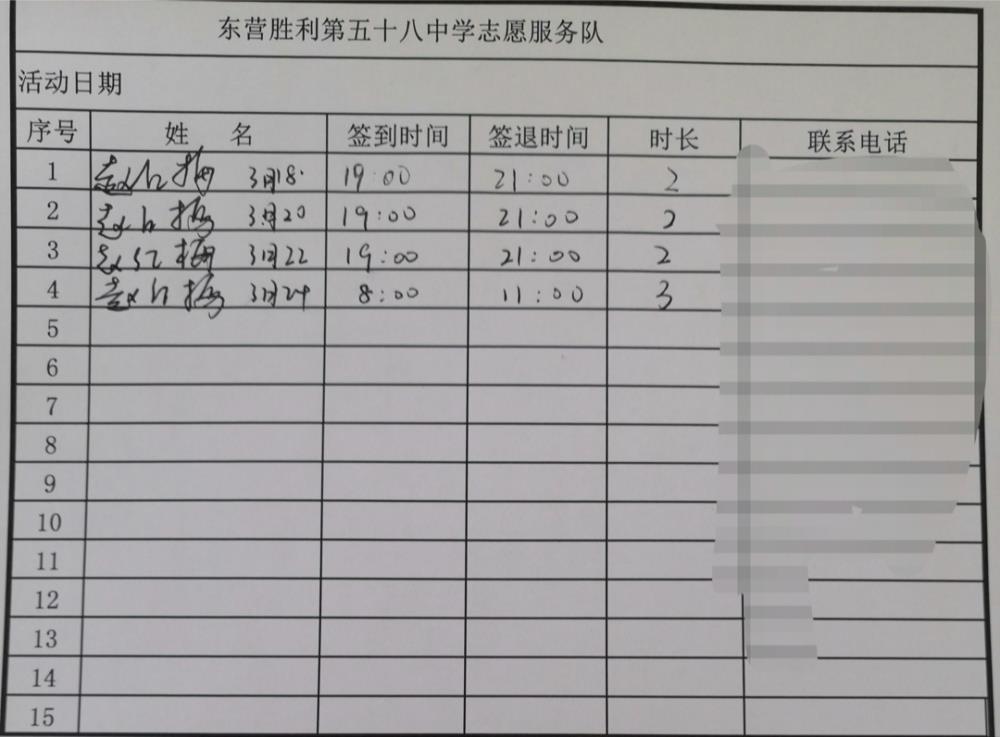 东营胜利第五十八中学志愿服务队
活动日期
序号 姓 名 签到时间 签退时间 时长 联系电话
1 赵红梅 3月18. 19:00 21:00 2
2 赵红梅 3月20 19:00 21:00 2
3 赵红梅 3月22 19:00 21:00 2
4 赵红梅 3月24 8:00 11:00 3
5
6
7
8
9
10
11
12
13
14
15